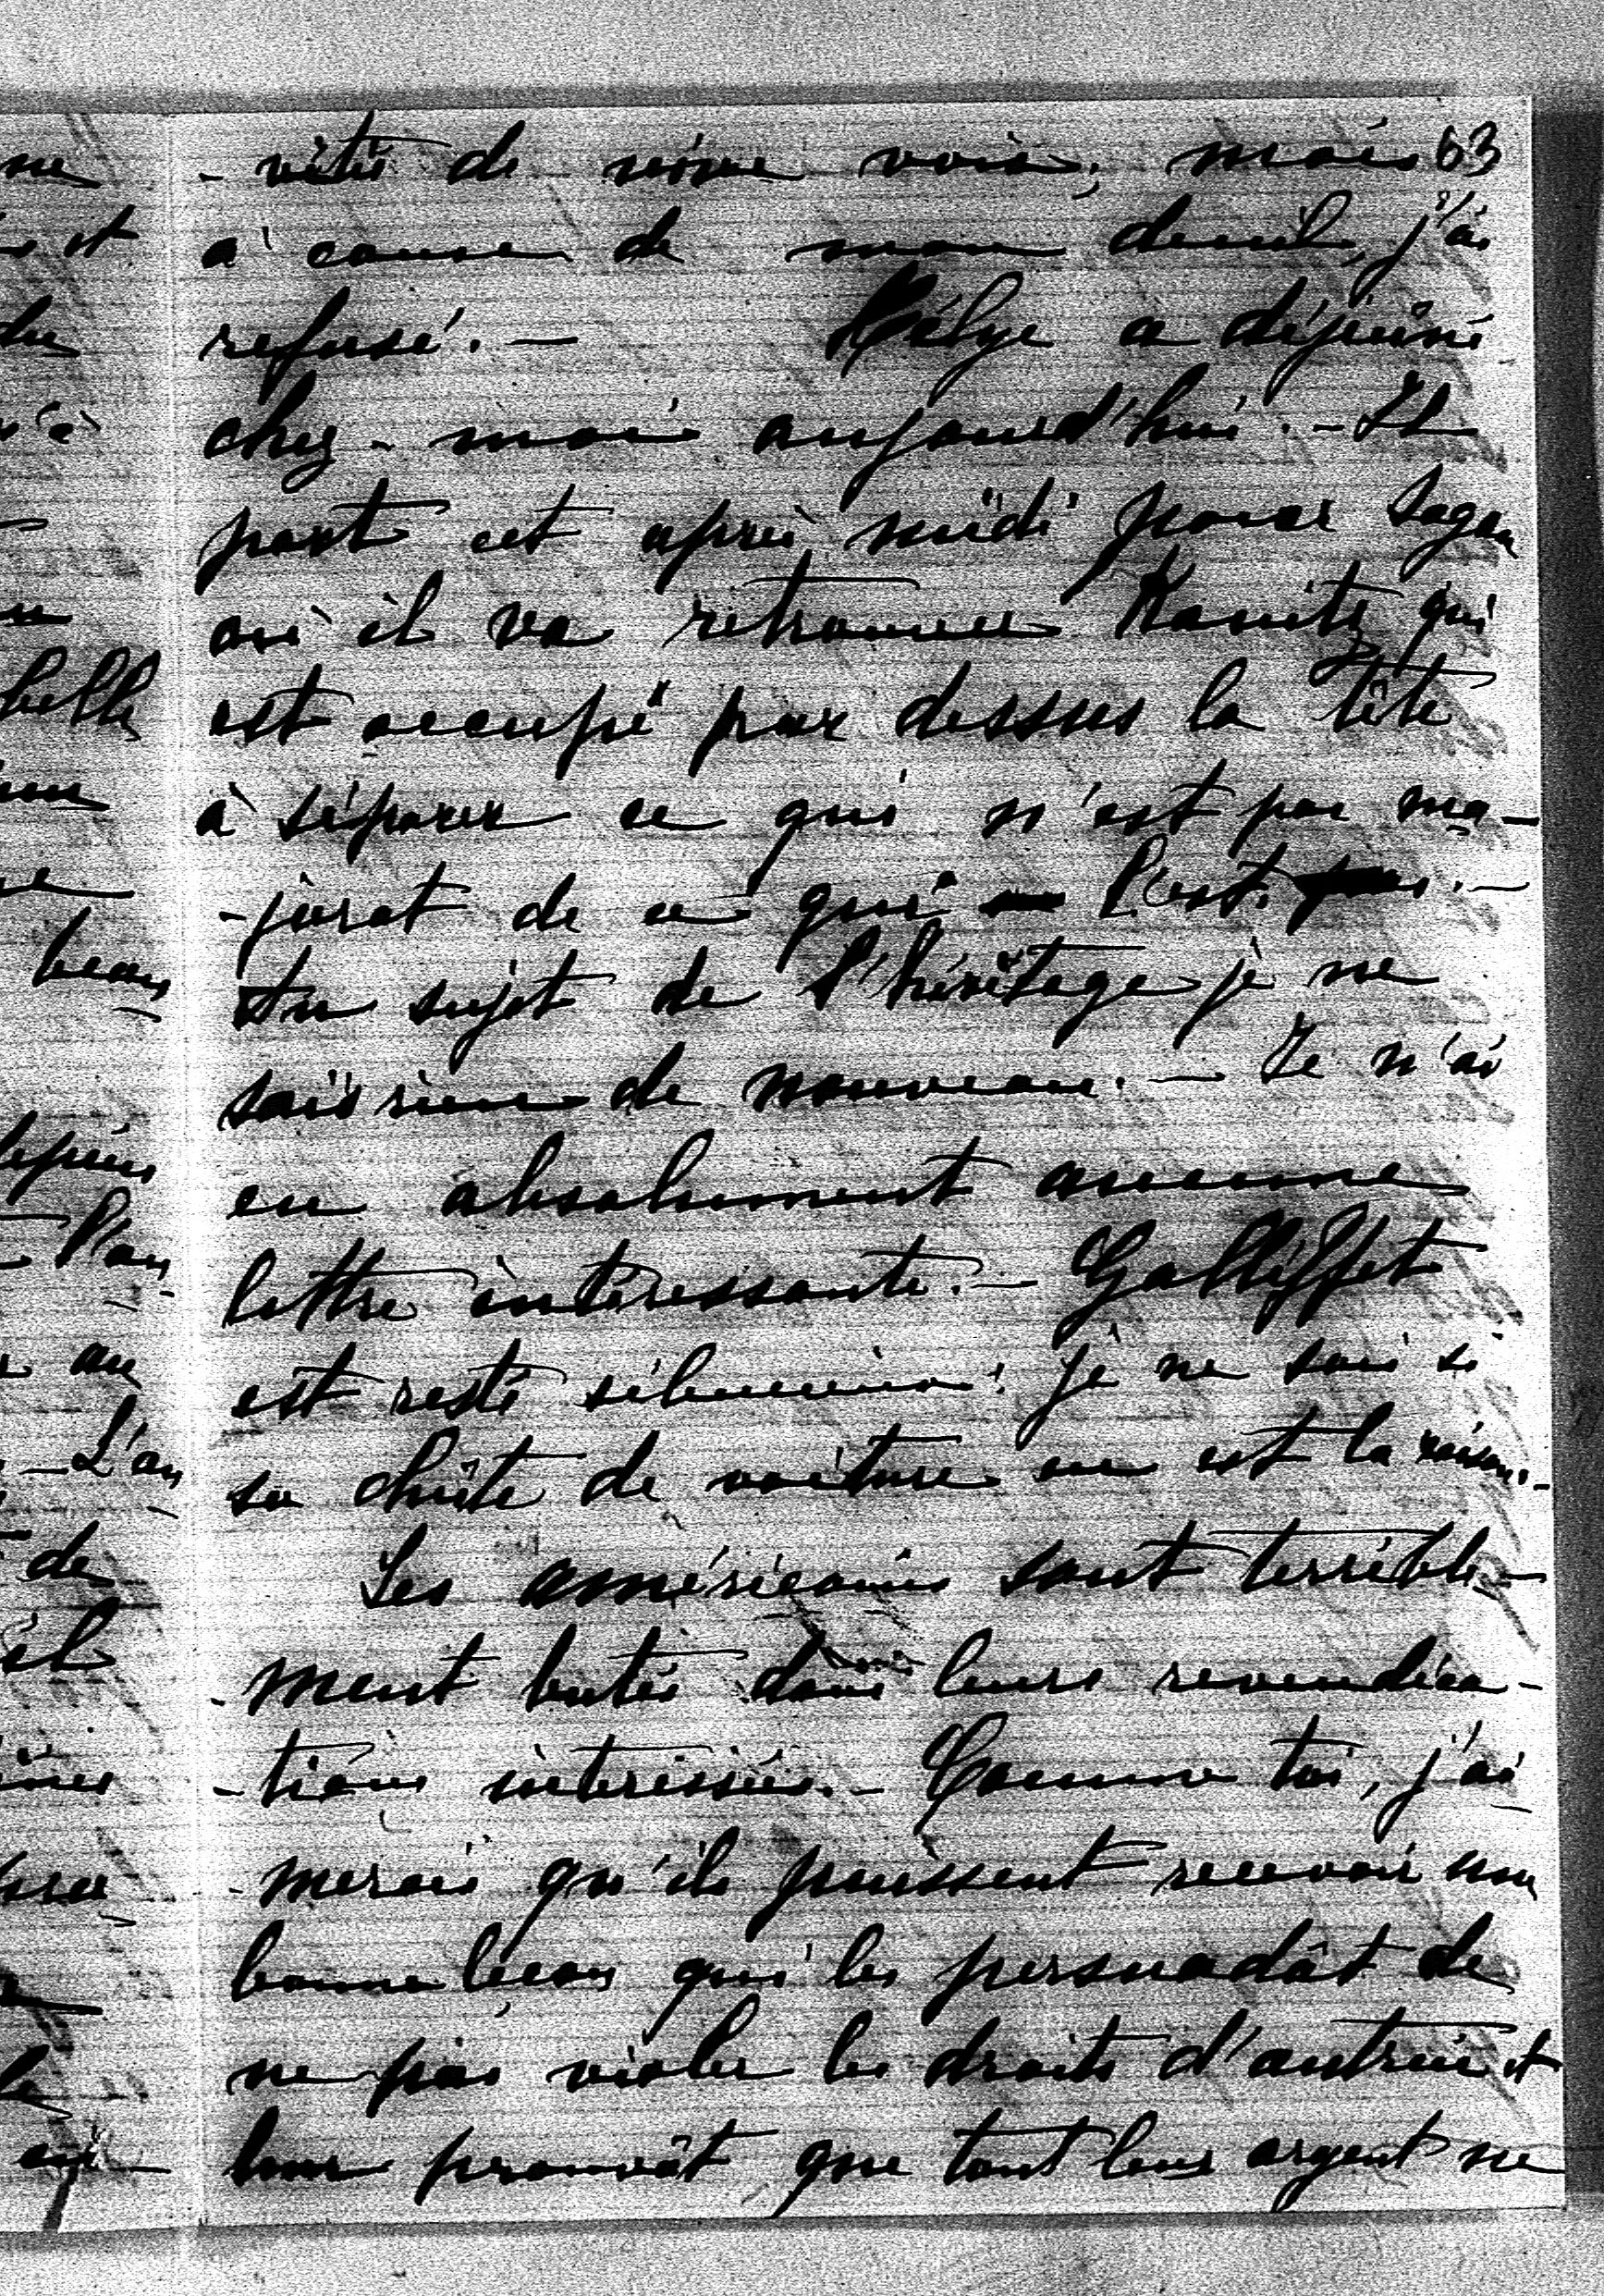 63
- vités de venir voir; mais
à cause de mon deuil, j'ai
refusé. — Hélye a déjeûné
chez - moi aujourd'hui. — Il
part cet après midi pour Sagan
où il va retrouver qui
est occupé par dessus la tête
à séparer ce qui n'est pas ma-
- jorat de ce qui l'est. —
Au sujet de l'héritage je ne
sais rien de nouveau. — Je n'ai
eu absolument aucune
lettre intéressante. — Galliffet
est resté silencieux: je ne sais si
sa chûte de voiture en est la raison. -
Les américains sont terrible-
- ment butés dans leurs revendica-
- tions intéressées. — Comme toi, j'ai-
- merais qu'ils puissent recevoir une
bonne leçon qui les persuadât de
ne pas violer les droits d'autrui et
leur prouvât que tout leur argent ne